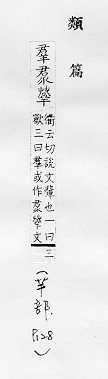 類篇
羣
衢云切說文輩也一曰
獸三曰羣或作
文
三
(羊部. P.128)